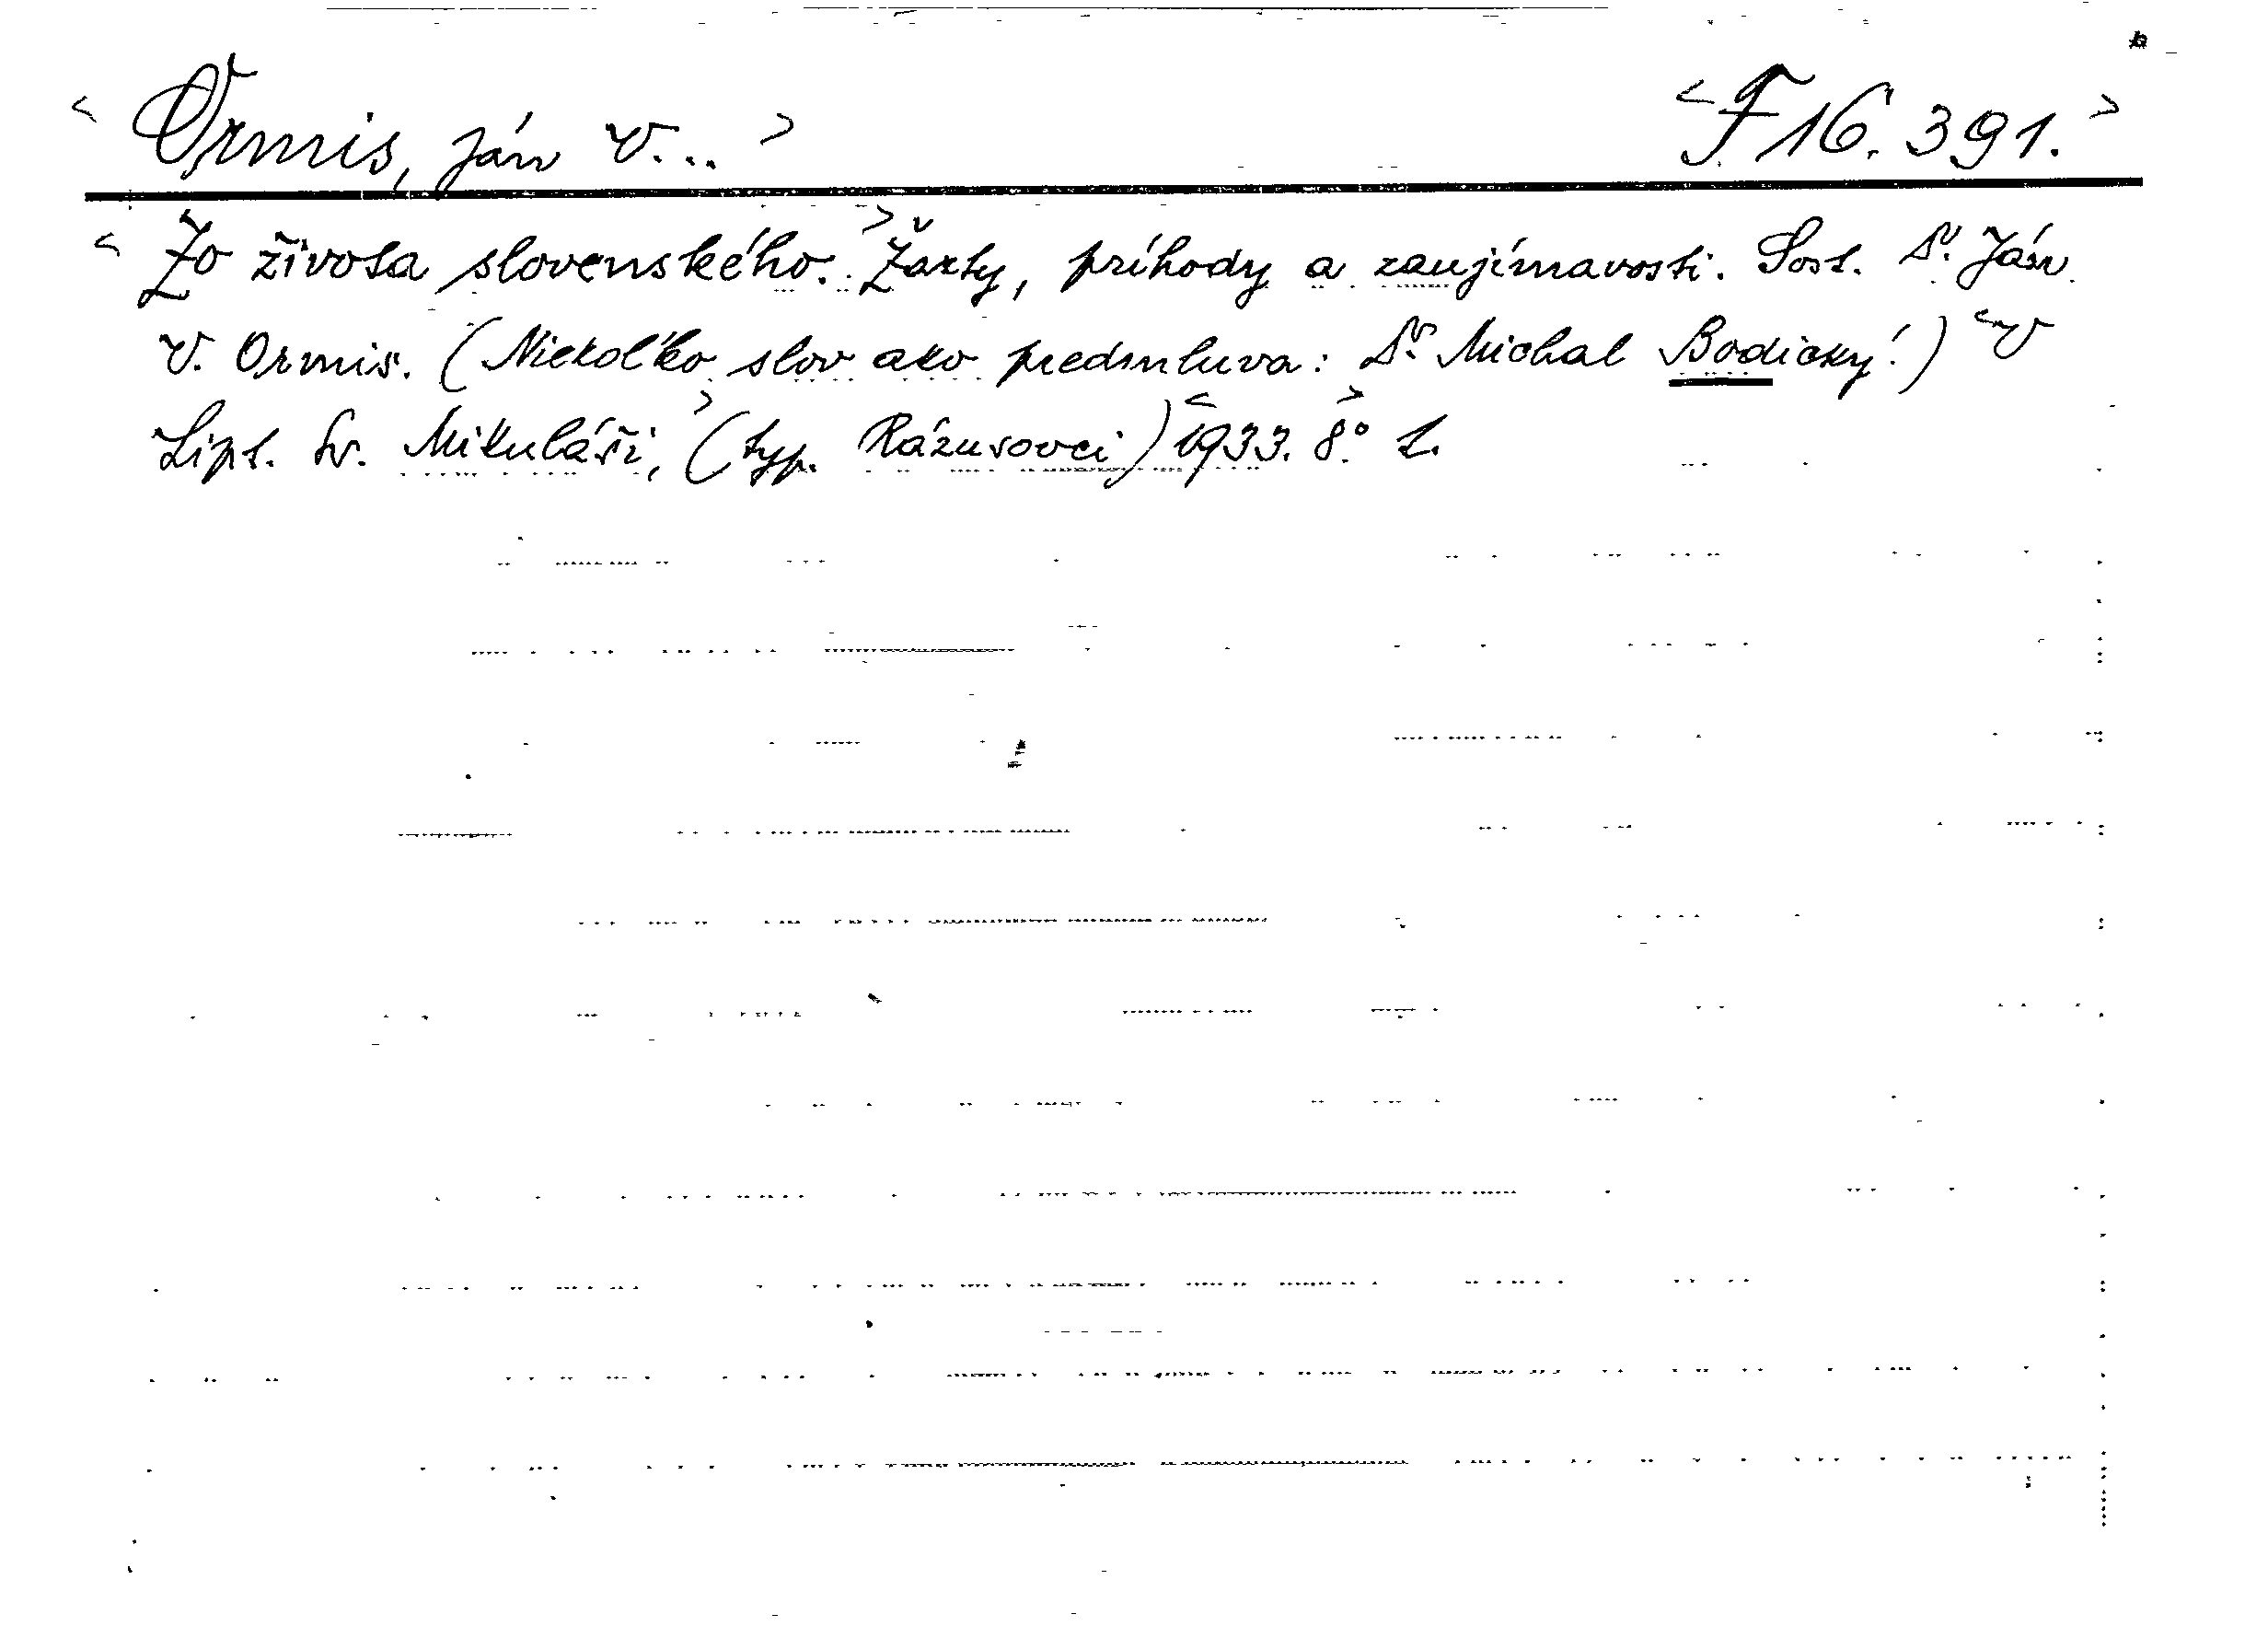 < Ormis, Ján V... > < F 16.391. >
< Zo života slovenského. > Žarty, príhody a zaujímavosti. Sost. Dr. Ján
V. Ormis. (Niekoľko slov ako predmluva: Dr. Michal Bodický.) < V
Lipt. Sv. Mikuláši, > (typ. Rázusovci) < 1933. > 8° L.